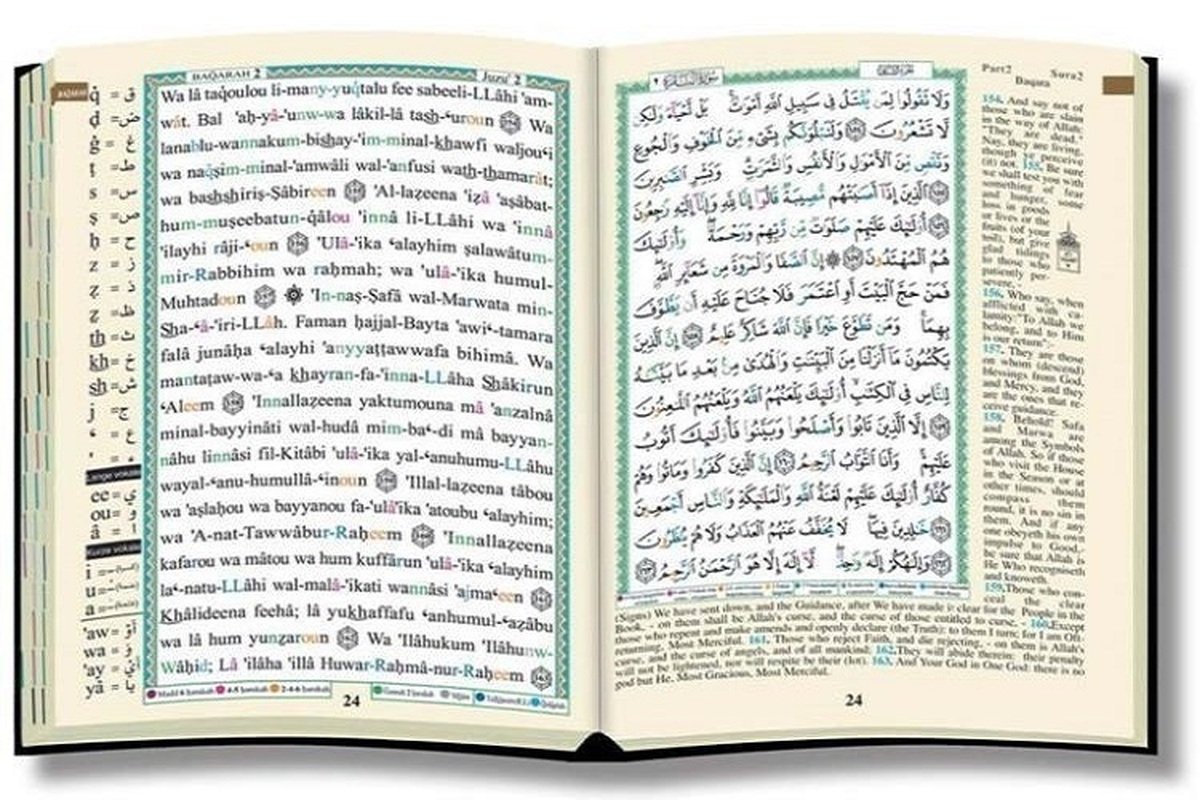 BAQARAH 2
Juzu' 2
Wa lâ taqoulou li-many-yuqtalu fee sabeeli-LLâhi 'am-
wât. Bal 'aḥ-yâ-'unw-wa lâkil-lâ tash-‘uroun Wa
lanablu-wannakum-bishay-'im-minal-khawfi waljou‘i
wa naqṣim-minal-'amwâli wal-'anfusi wath-thamarât;
wa bashshiriṣ-Ṣâbireen 'Al-laẓeena 'iẓâ 'aṣâbat-
hum-muṣeebatun-qâlou 'innâ li-LLâhi wa 'innâ
'ilayhi râji-‘oun 'Ulâ-'ika ‘alayhim ṣalawâtum-
mir-Rabbihim wa raḥmah; wa 'ulâ-'ika humul-
Muhtadoun 'In-naṣ-Ṣafâ wal-Marwata min-
Sha-‘â-'iri-LLâh. Faman ḥajjal-Bayta 'awi‘-tamara
falâ junâḥa ‘alayhi 'anyyaṭṭawwafa bihimâ. Wa
mantaṭaw-wa-‘a khayran-fa-'inna-LLâha Shâkirun
‘Aleem 'Innallaẓeena yaktumouna mâ 'anzalnâ
minal-bayyinâti wal-hudâ mim-ba‘-di mâ bayyan-
nâhu linnâsi fil-Kitâbi 'ulâ-'ika yal-‘anuhumu-LLâhu
wayal-‘anu-humullâ-‘inoun 'Illal-laẓeena tâbou
wa 'aṣlaḥou wa bayyanou fa-'ulâ'ika 'atoubu ‘alayhim;
wa 'A-nat-Tawwâbur-Raḥeem 'Innallaẓeena
kafarou wa mâtou wa hum kuffârun 'ulâ-'ika ‘alayhim
la‘-natu-LLâhi wal-malâ-'ikati wannâsi 'ajma‘een
Khâlideena feehâ; lâ yukhaffafu ‘anhumul-‘aẓâbu
wa lâ hum yunẓaroun Wa 'Ilâhukum 'Ilâhunw-
Wâḥid; Lâ 'ilâha 'illâ Huwar-Raḥmâ-nur-Raḥeem
24
q = ق
ḍ = ض
ġ = غ
ṭ = ط
s = س
ṣ = ص
ḥ = ح
z = ز
ẓ = ذ
ẓ = ظ
th = ث
kh = خ
sh = ش
j = ج
‘ = ع
' = ء
ee = ي
ou = و
â = ا
i =
u =
a =
'aw = أَوْ
wa = وَ
'ay = أَيْ
yâ = يا
وَلَا تَقُولُوا لِمَن يُقْتَلُ فِي سَبِيلِ اللَّهِ أَمْوَاتٌ بَلْ أَحْيَاءٌ وَلَكِن
لَّا تَشْعُرُونَ وَلَنَبْلُوَنَّكُم بِشَيْءٍ مِّنَ الْخَوْفِ وَالْجُوعِ
وَنَقْصٍ مِّنَ الْأَمْوَالِ وَالْأَنفُسِ وَالثَّمَرَاتِ وَبَشِّرِ الصَّابِرِينَ
الَّذِينَ إِذَا أَصَابَتْهُم مُّصِيبَةٌ قَالُوا إِنَّا لِلَّهِ وَإِنَّا إِلَيْهِ رَاجِعُونَ
أُولَئِكَ عَلَيْهِمْ صَلَوَاتٌ مِّن رَّبِّهِمْ وَرَحْمَةٌ وَأُولَئِكَ
هُمُ الْمُهْتَدُونَ إِنَّ الصَّفَا وَالْمَرْوَةَ مِن شَعَائِرِ اللَّهِ
فَمَنْ حَجَّ الْبَيْتَ أَوِ اعْتَمَرَ فَلَا جُنَاحَ عَلَيْهِ أَن يَطَّوَّفَ
بِهِمَا وَمَن تَطَوَّعَ خَيْرًا فَإِنَّ اللَّهَ شَاكِرٌ عَلِيمٌ إِنَّ الَّذِينَ
يَكْتُمُونَ مَا أَنزَلْنَا مِنَ الْبَيِّنَاتِ وَالْهُدَى مِن بَعْدِ مَا بَيَّنَّاهُ
لِلنَّاسِ فِي الْكِتَابِ أُولَئِكَ يَلْعَنُهُمُ اللَّهُ وَيَلْعَنُهُمُ اللَّاعِنُونَ
إِلَّا الَّذِينَ تَابُوا وَأَصْلَحُوا وَبَيَّنُوا فَأُولَئِكَ أَتُوبُ
عَلَيْهِمْ وَأَنَا التَّوَّابُ الرَّحِيمُ إِنَّ الَّذِينَ كَفَرُوا وَمَاتُوا وَهُمْ
كُفَّارٌ أُولَئِكَ عَلَيْهِمْ لَعْنَةُ اللَّهِ وَالْمَلَائِكَةِ وَالنَّاسِ أَجْمَعِينَ
خَالِدِينَ فِيهَا لَا يُخَفَّفُ عَنْهُمُ الْعَذَابُ وَلَا هُمْ يُنظَرُونَ
وَإِلَهُكُمْ إِلَهٌ وَاحِدٌ لَّا إِلَهَ إِلَّا هُوَ الرَّحْمَنُ الرَّحِيمُ
Part2 Sura2
Baqara
154. And say not of
those who are slain
in the way of Allah:
"They are dead."
Nay, they are living,
though ye perceive
(it) not. 155. Be sure
we shall test you with
something of fear
and hunger, some
loss in goods
or lives or the
fruits (of your
toil), but give
glad tidings
to those who
patiently per-
severe,-
156. Who say, when
afflicted with ca-
lamity:"To Allah we
belong, and to Him
is our return":-
157. They are those
on whom (descend)
blessings from God,
and Mercy, and they
are the ones that re-
ceive guidance.
158. Behold! Safa
and Marwa are
among the Symbols
of Allah. So if those
who visit the House
in the Season or at
other times, should
compass them
round, it is no sin in
them. And if any
one obeyeth his own
impulse to Good,-
be sure that Allah is
He Who recogniseth
and knoweth.
159.Those who con-
ceal the clear
(Signs) We have sent down, and the Guidance, after We have made it clear for the People in the
Book,- on them shall be Allah's curse, and the curse of those entitled to curse,- 160.Except
those who repent and make amends and openly declare (the Truth): to them I turn; for I am Oft-
returning, Most Merciful. 161. Those who reject Faith, and die rejecting,- on them is Allah's
curse, and the curse of angels, and of all mankind; 162.They will abide therein: their penalty
will not be lightened, nor will respite be their (lot). 163. And Your God in One God: there is no
god but He, Most Gracious, Most Merciful.
24